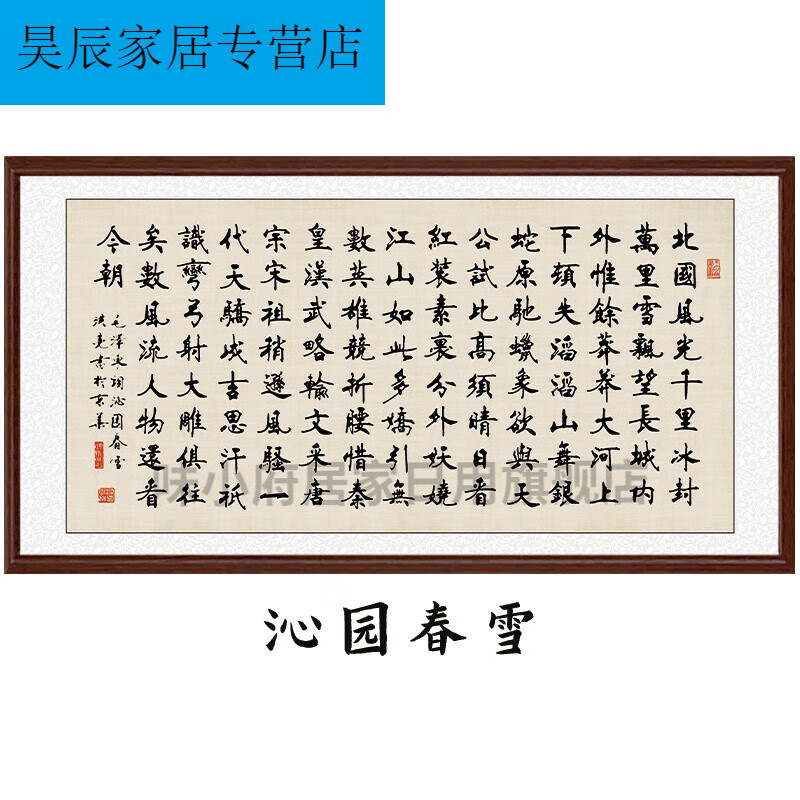 昊辰家居专营店
北國風光千里冰封
萬里雪飄望長城内
外惟餘莽莽大河上
下頓失滔滔山舞銀
蛇原馳蠟象欲與天
公試比高須晴日看
紅裝素裹分外妖嬈
江山如此多嬌引無
數英雄競折腰惜秦
皇漢武略輸文采唐
宗宋祖稍遜風騷一
代天驕成吉思汗祇
識彎弓射大雕俱往
矣數風流人物還看
今朝
毛澤東詞沁園春雪
洪亮書於京華
味小府居家日用旗舰店
沁园春雪